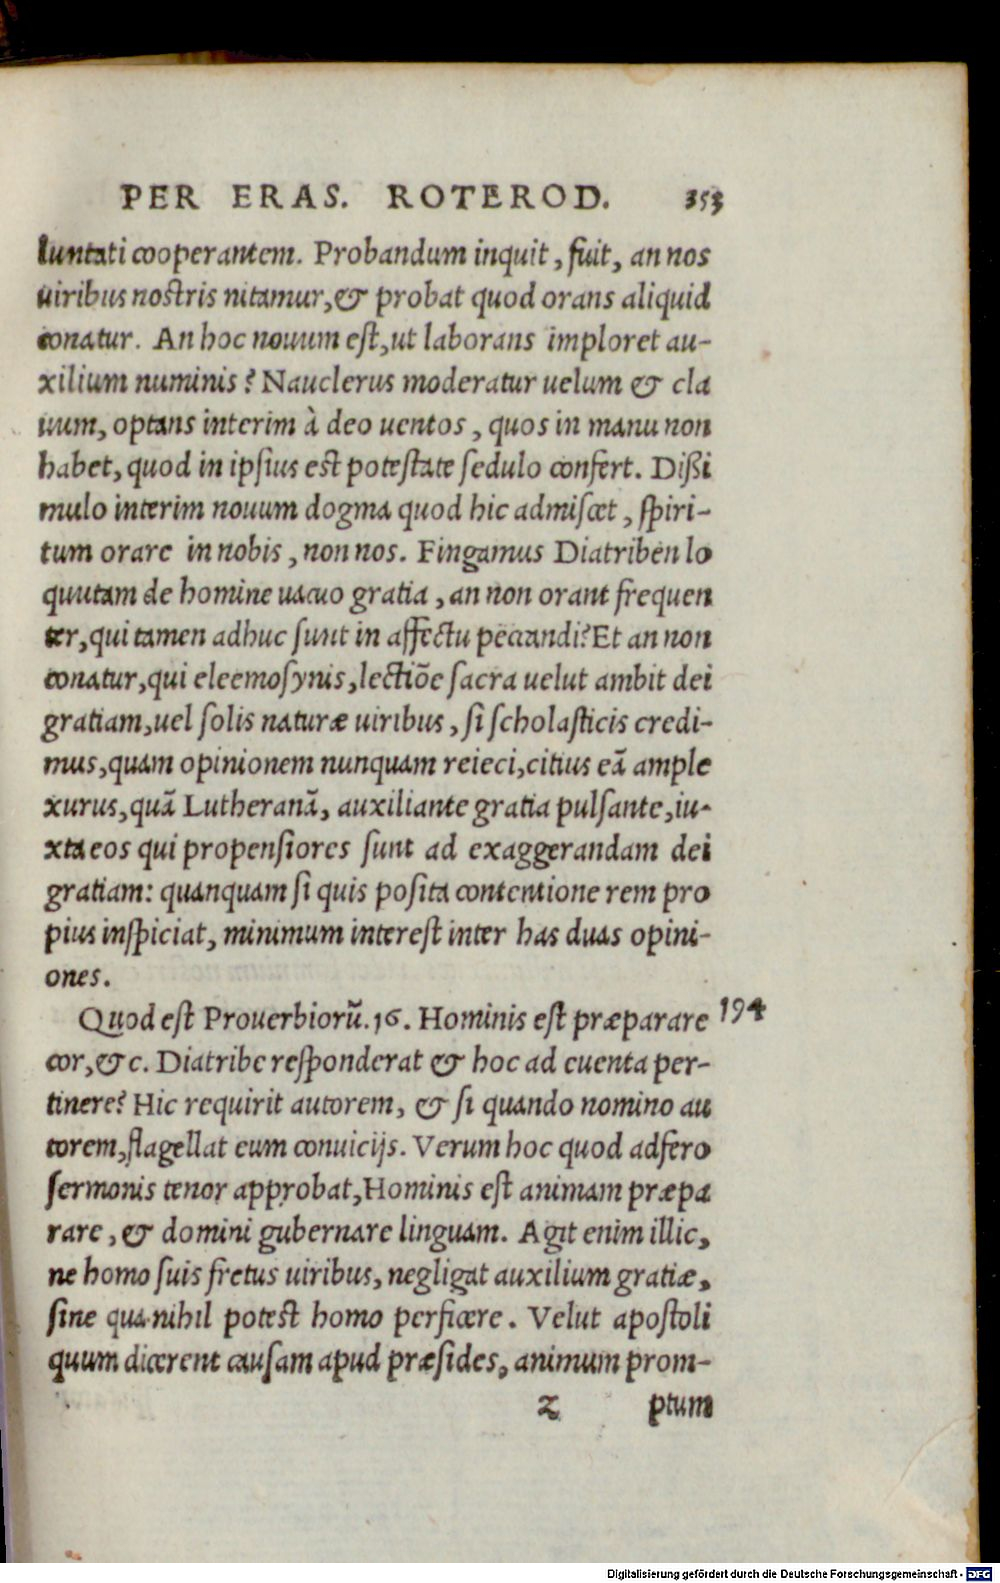 PER ERAS. ROTEROD. 353
luntati cooperantem. Probandum inquit, fuit, an nos
uiribus nostris nitamur, & probat quod orans aliquid
conatur. An hoc nouum est, ut laborans imploret au-
xilium numinis? Nauclerus moderatur uelum & cla
uum, optans interim à deo uentos, quos in manu non
habet, quod in ipsius est potestate sedulo confert. Dißi
mulo interim nouum dogma quod hic admiscet, spiri-
tum orare in nobis, non nos. Fingamus Diatriben lo
quutam de homine uacuo gratia, an non orant frequen
ter, qui tamen adhuc sunt in affectu peccandi? Et an non
conatur, qui eleemosynis, lectiõe sacra uelut ambit dei
gratiam, uel solis naturæ uiribus, si scholasticis credi-
mus, quam opinionem nunquam reieci, citius eã ample
xurus, quã Lutheranã, auxiliante gratia pulsante, iu-
xta eos qui propensiores sunt ad exaggerandam dei
gratiam: quanquam si quis posita contentione rem pro
pius inspiciat, minimum interest inter has duas opini-
ones.
Quod est Prouerbiorũ. 16. Hominis est præparare 194
cor, & c. Diatribe responderat & hoc ad euenta per-
tinere? Hic requirit autorem, & si quando nomino au
torem, flagellat eum conuicijs. Verum hoc quod adfero
sermonis tenor approbat, Hominis est animam præpa
rare, & domini gubernare linguam. Agit enim illic,
ne homo suis fretus uiribus, negligat auxilium gratiæ,
sine qua nihil potest homo perficere. Velut apostoli
quum dicerent causam apud præsides, animum prom-
z ptum
Digitalisierung gefördert durch die Deutsche Forschungsgemeinschaft - DFG